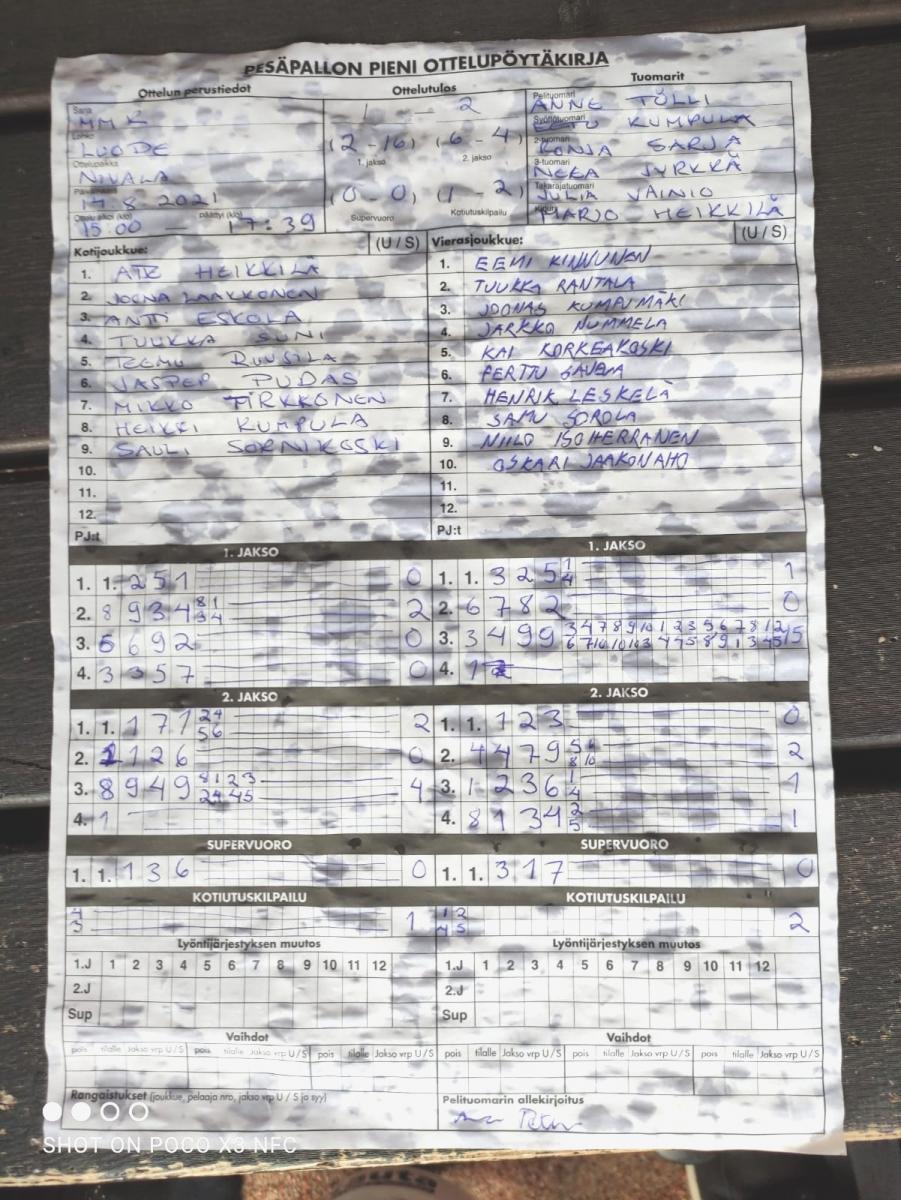 PESÄPALLON PIENI OTTELUPÖYTÄKIRJA
Ottelun perustiedot
Ottelutulos
Tuomarit
Sarja
MMK
Lohko
LUODE
Ottelupaikka
NIVALA
Päivämäärä
14.8.2021
Ottelu alkoi (klo) päättyi (klo)
15:00 — 17:39
1 - 2
(2 - 16) (6 - 4)
1. jakso 2. jakso
(0 - 0) (1 - 2)
Supervuoro Kotiutuskilpailu
Pelituomari
ANNE TÖLLI
Syöttötuomari
EETU KUMPULA
2-tuomari
RONJA SARJA
3-tuomari
NEKA JYRKKÄ
Takarajatuomari
JULIA VAINIO
Kirjuri
MARJO HEIKKILÄ
Kotijoukkue: (U / S)
1. ATE HEIKKILÄ
2. JOONA LAAKKONEN
3. ANTTI ESKOLA
4. TUUKKA SUNI
5. TEEMU RUUSILA
6. JASPER PUDAS
7. MIKKO TIRKKONEN
8. HEIKKI KUMPULA
9. SAULI SORNIKOSKI
10.
11.
12.
PJ:t
Vierasjoukkue: (U / S)
1. EEMI KINNUNEN
2. TUUKKA RANTALA
3. JOONAS KUMPUMÄKI
4. JARKKO NUMMELA
5. KAI KORKEAKOSKI
6. PERTTU
7. HENRIK LESKELÄ
8. SAMU SOROLA
9. NIILO ISOHERRANEN
10. OSKARI JAAKONAHO
11.
12.
PJ:t
1. JAKSO
1. 1. 251 0
2. 8 9 3 4 8 1 2
3 4
3. 5 6 9 2 0
4. 3 3 5 7 0
1. JAKSO
1. 1. 3 2 5 1 1
4
2. 6 7 8 2 0
3. 3 4 9 9 3 4 7 8 9 10 1 2 3 5 6 7 8 1 2 15
4. 1
2. JAKSO
1. 1. 1 7 1 2 4 2
5 6
2. 1 1 2 6 0
3. 8 9 4 9 8 1 2 3 4
2 4 4 5
4. 1
2. JAKSO
1. 1. 1 2 3 0
2. 4 4 7 9 5 6 2
8 10
3. 1 2 3 6 1 1
4
4. 8 1 3 4 2 1
5
SUPERVUORO
1. 1. 1 3 6 0
SUPERVUORO
1. 1. 3 1 7 0
KOTIUTUSKILPAILU
4 1
3
KOTIUTUSKILPAILU
1 2 2
4 5
Lyöntijärjestyksen muutos
1.J 1 2 3 4 5 6 7 8 9 10 11 12
2.J
Sup
Lyöntijärjestyksen muutos
1.J 1 2 3 4 5 6 7 8 9 10 11 12
2.J
Sup
Vaihdot
pois tilalle Jakso vrp U / S pois tilalle Jakso vrp U / S pois tilalle Jakso vrp U / S
Vaihdot
pois tilalle Jakso vrp U / S pois tilalle Jakso vrp U / S pois tilalle Jakso vrp U / S
Rangaistukset (joukkue, pelaaja nro, jakso vrp U / S ja syy)
Pelituomarin allekirjoitus
SHOT ON POCO X3 NFC